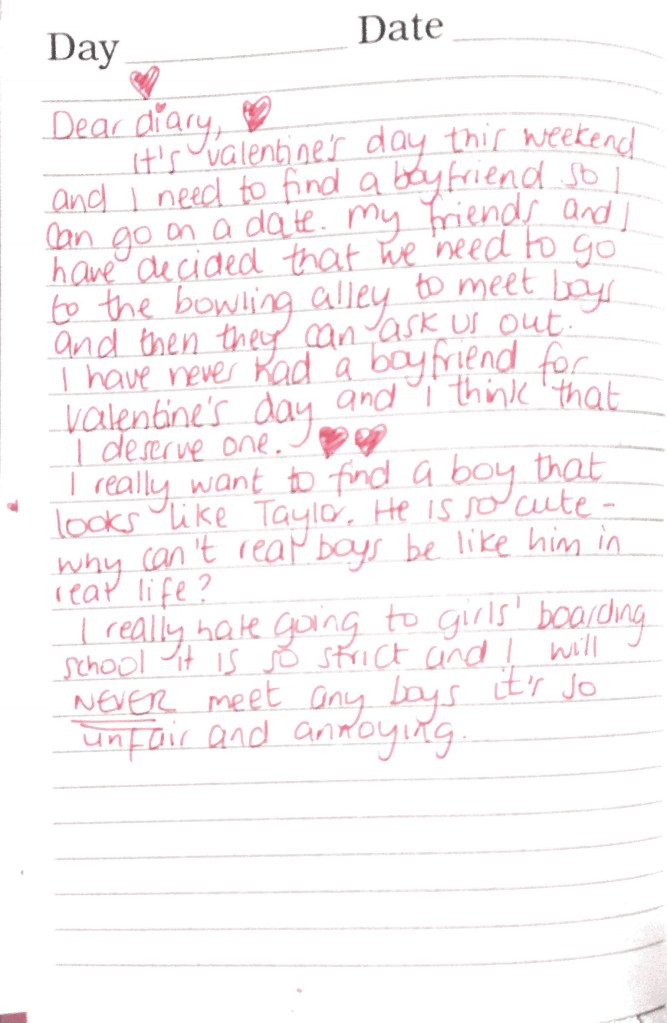 Day Date
Dear diary,
It's valentine's day this weekend
and I need to find a boyfriend so I
can go on a date. my friends and I
have decided that we need to go
to the bowling alley to meet boys
and then they can ask us out.
I have never had a boyfriend for
valentine's day and I think that
I deserve one.
I really want to find a boy that
looks like Taylor. He is so cute -
why can't real boys be like him in
real life?
I really hate going to girls' boarding
school it is so strict and I will
NEVER meet any boys it's so
unfair and annoying.